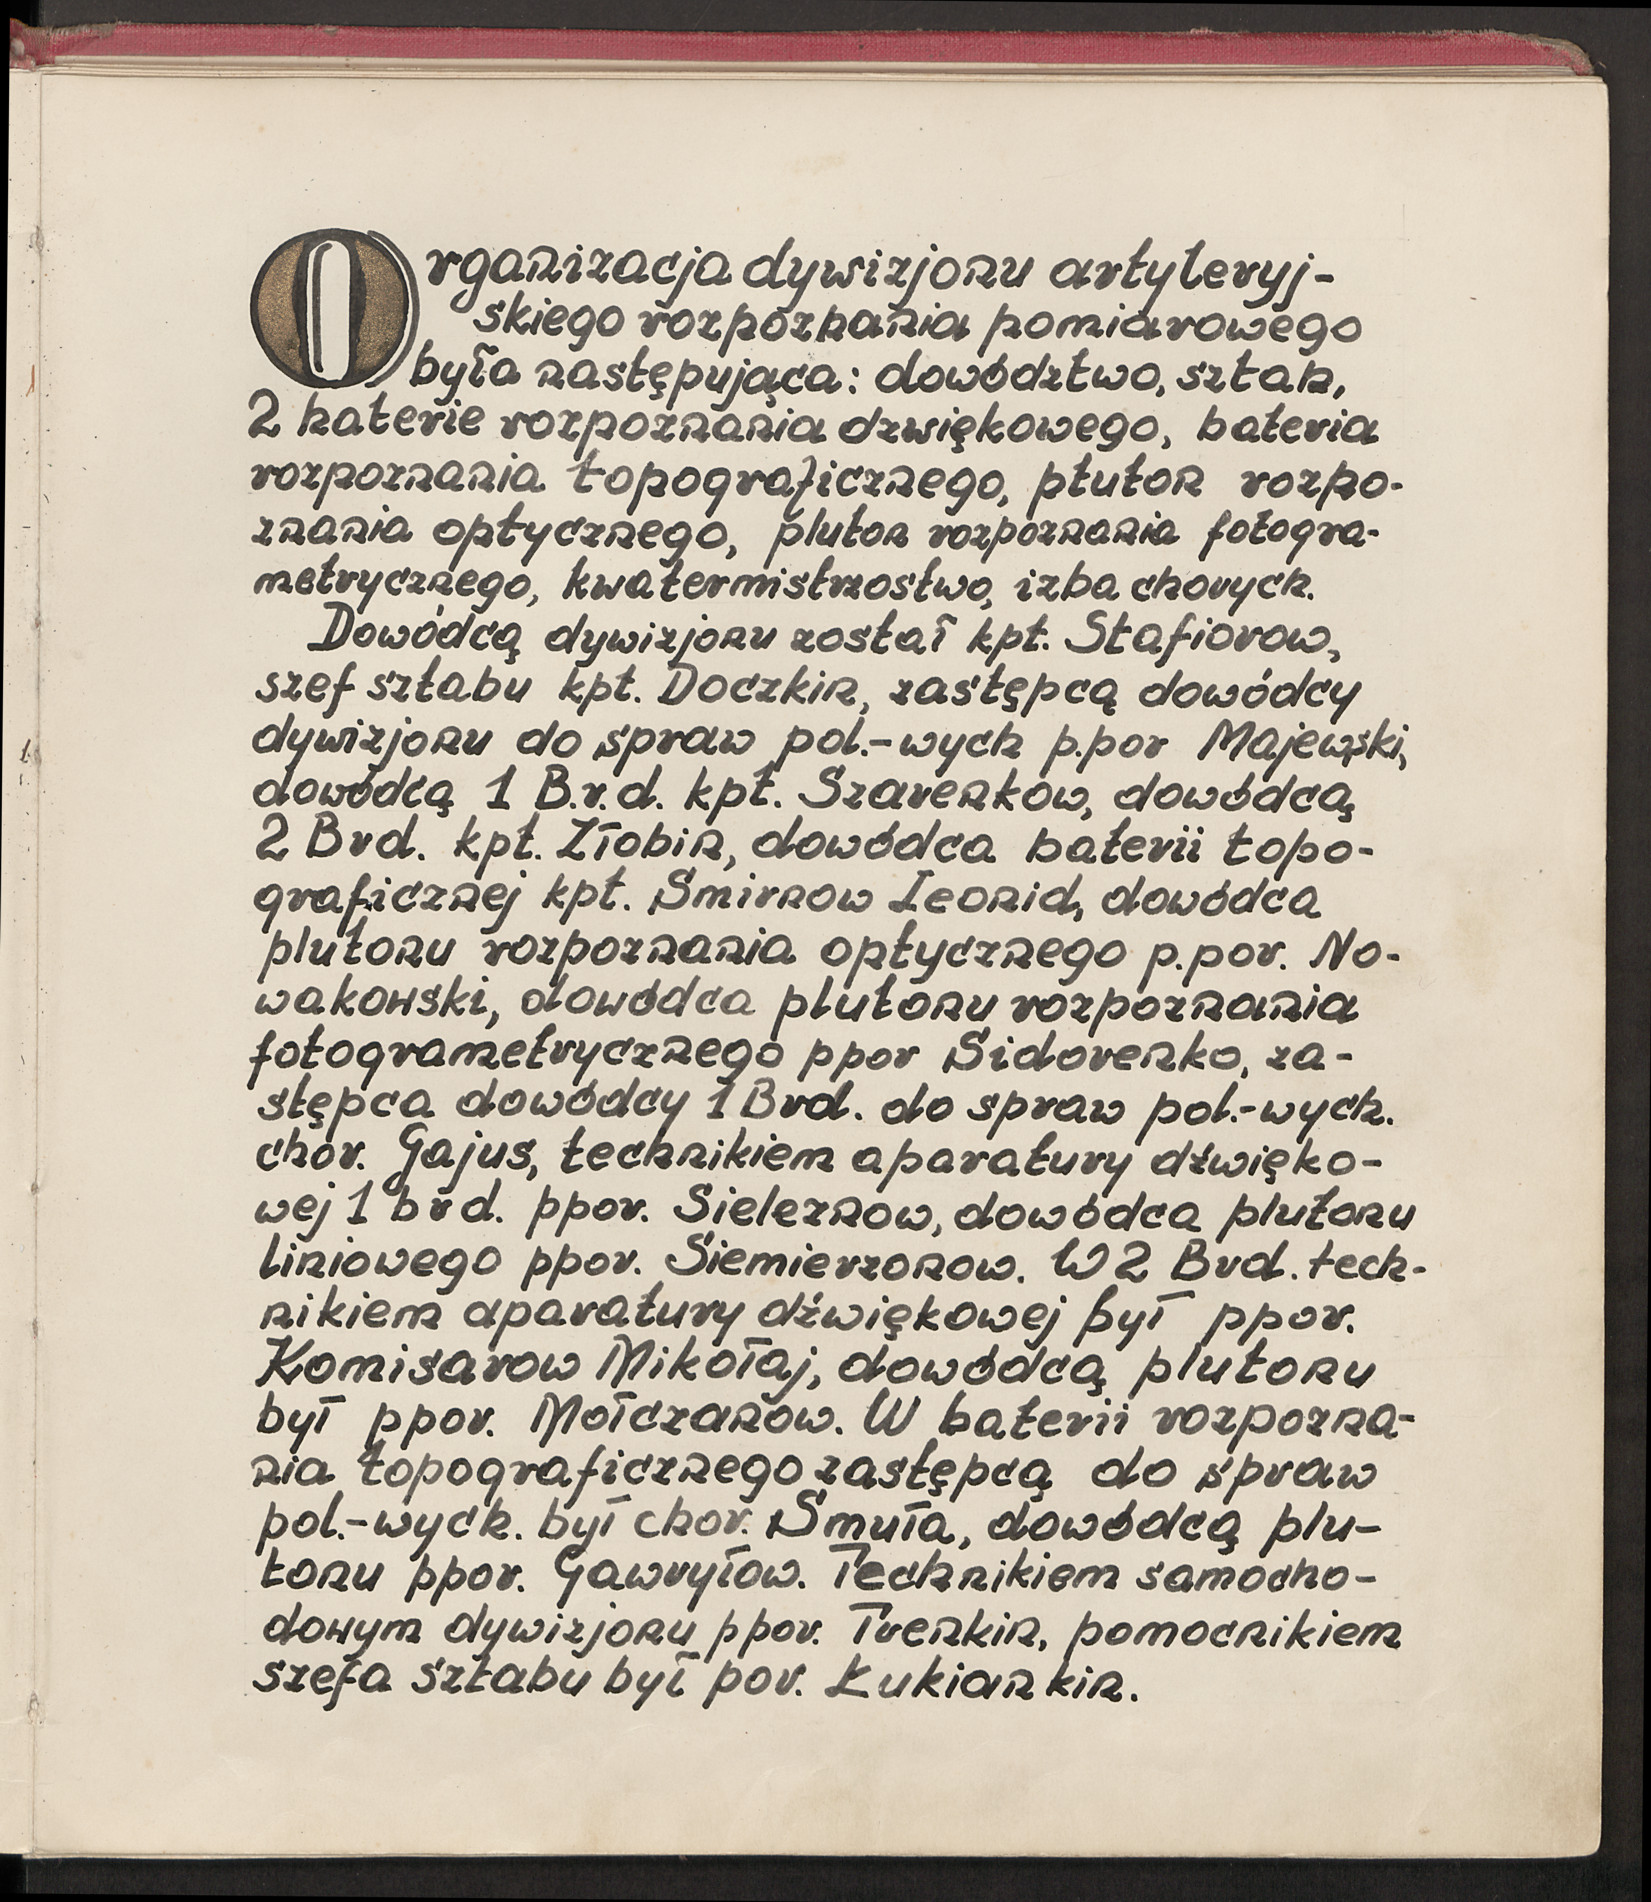 Organizacja dywizjonu artyleryj-
skiego rozpoznania pomiarowego
była następująca: dowództwo, sztab,
2 baterie rozpoznania dzwiękowego, bateria
rozpoznania topograficznego, pluton rozpo-
znania optycznego, pluton rozpoznania fotogra-
metrycznego, kwatermistrzostwo, izba chorych.
Dowódcą dywizjonu został kpt. Stafiorow,
szef sztabu kpt. Doczkin, zastępcą dowódcy
dywizjonu do spraw pol.-wych p.por Majewski,
dowódcą 1 B.r.d. kpt. Szarenkow, dowódcą
2 Brd. kpt. Złobin, dowódca baterii topo-
graficznej kpt. Smirnow Leonid, dowódca
plutonu rozpoznania optycznego p.por. No-
wakowski, dowódca plutonu rozpoznania
fotogrametrycznego ppor Sidorenko, za-
stępca dowódcy 1 Brd. do spraw pol.-wych.
chor. Gajus, technikiem aparatury dźwięko-
wej 1 brd. ppor. Sieleznow, dowódca plutonu
liniowego ppor. Siemierzonow. W 2 Brd. tech-
nikiem aparatury dźwiękowej był ppor.
Komisarow Mikołaj, dowódcą plutonu
był ppor. Mołczanow. W baterii rozpozna-
nia topograficznego zastępcą do spraw
pol.-wych. był chor. Smuła, dowódcą plu-
tonu ppor. Gawryłow. Technikiem samocho-
dowym dywizjonu ppor. Trenkin, pomocnikiem
szefa sztabu był por. Łukiankin.